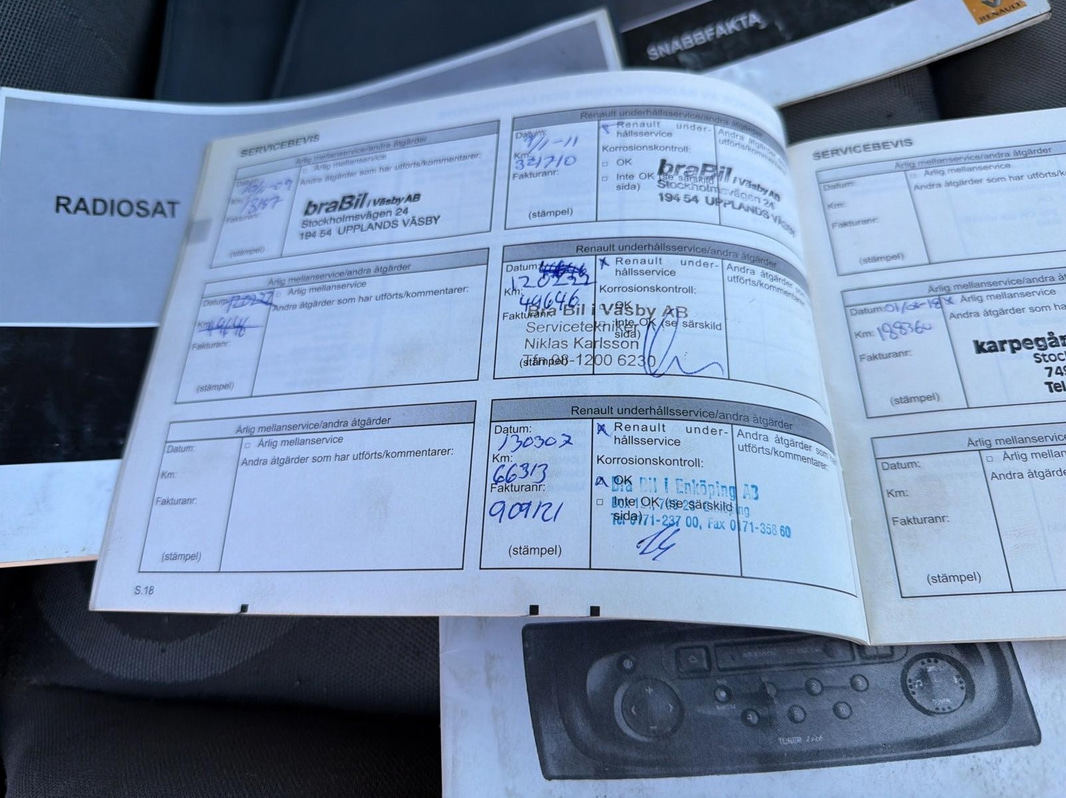 SNABBFAKTA
RENAULT
RADIOSAT
SERVICEBEVIS
Årlig mellanservice/andra åtgärder
Datum:
Årlig mellanservice
Andra åtgärder som har utförts/kommentarer:
Km:
Fakturanr:
braBil i Väsby AB
Stockholmsvägen 24
194 54 UPPLANDS VÄSBY
(stämpel)
Renault underhållsservice/andra åtgärder
Datum:
Renault under-
hållsservice
Andra åtgärder
utförts/komm
Km:
Korrosionskontroll:
Fakturanr:
OK
Inte OK (se särskild
sida)
braBil i Väsby AB
Stockholmsvägen 24
194 54 UPPLANDS VÄSBY
(stämpel)
Årlig mellanservice/andra åtgärder
Datum:
Årlig mellanservice
Andra åtgärder som har utförts/kommentarer:
Km:
Fakturanr:
(stämpel)
Renault underhållsservice/andra åtgärder
Datum:
120222
X Renault under-
hållsservice
Andra åtgärder som
utförts/komm
Km:
49646
Korrosionskontroll:
OK
Fakturanr:
Inte OK (se särskild
sida)
Bra Bil i Väsby AB
Servicetekniker
Niklas Karlsson
Tfn 08-1200 6230
(stämpel)
Årlig mellanservice/andra åtgärder
Datum:
Årlig mellanservice
Andra åtgärder som har utförts/kommentarer:
Km:
Fakturanr:
(stämpel)
Renault underhållsservice/andra åtgärder
Datum:
130302
X Renault under-
hållsservice
Andra åtgärder som
utförts/kommentarer:
Km:
66313
Korrosionskontroll:
OK
Fakturanr:
909121
Inte OK (se särskild
sida)
Bra Bil i Enköping AB
Tel 0171-237 00, Fax 0171-358 60
(stämpel)
S.18
SERVICEBEVIS
Årlig mellanservice/andra åtgärder
Datum:
Årlig mellanservice
Andra åtgärder som har utförts/k
Km:
Fakturanr:
(stämpel)
Årlig mellanservice/andra
Datum:
Årlig mellanservice
Andra åtgärder som har
Km: 188360
Fakturanr:
karpegår
Stoc
749
Tel
(stämpel)
Årlig mellanservice/andra
Datum:
Årlig mellan
Andra åtgärde
Km:
Fakturanr:
(stämpel)